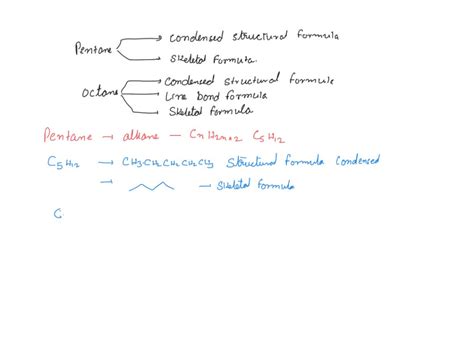 Pentane → Condensed structural formula
→ Skeletal formula.
Octane → Condensed structural formula
→ Line bond formula
→ Skeletal formula
Pentane → alkane – CnH2n+2 C5H12
C5H12 → CH3CH2CH2CH2CH3 Structural formula Condensed
→ – Skeletal formula
C